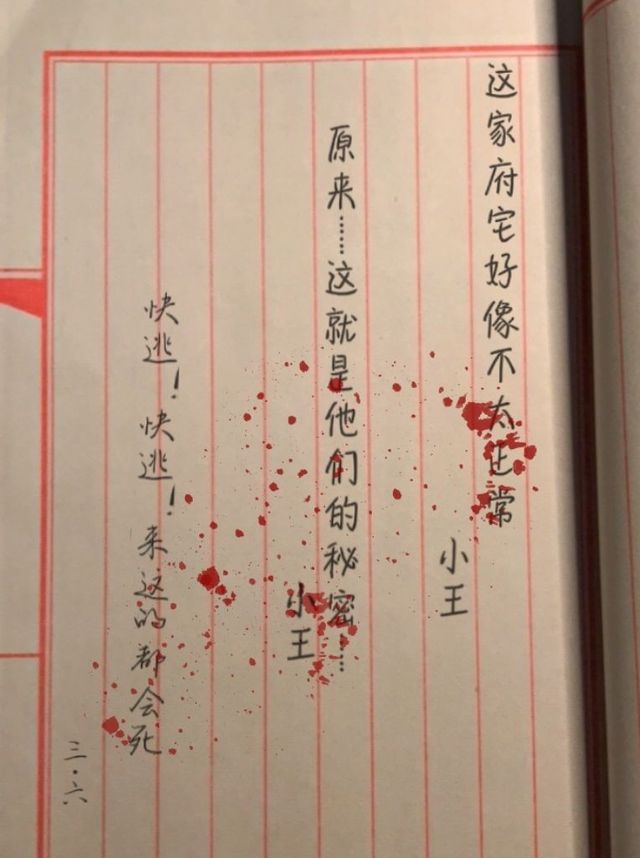 这家府宅好像不太正常
小王
原来……这就是他们的秘密……
小王
快逃！快逃！来这的都会死
三·六